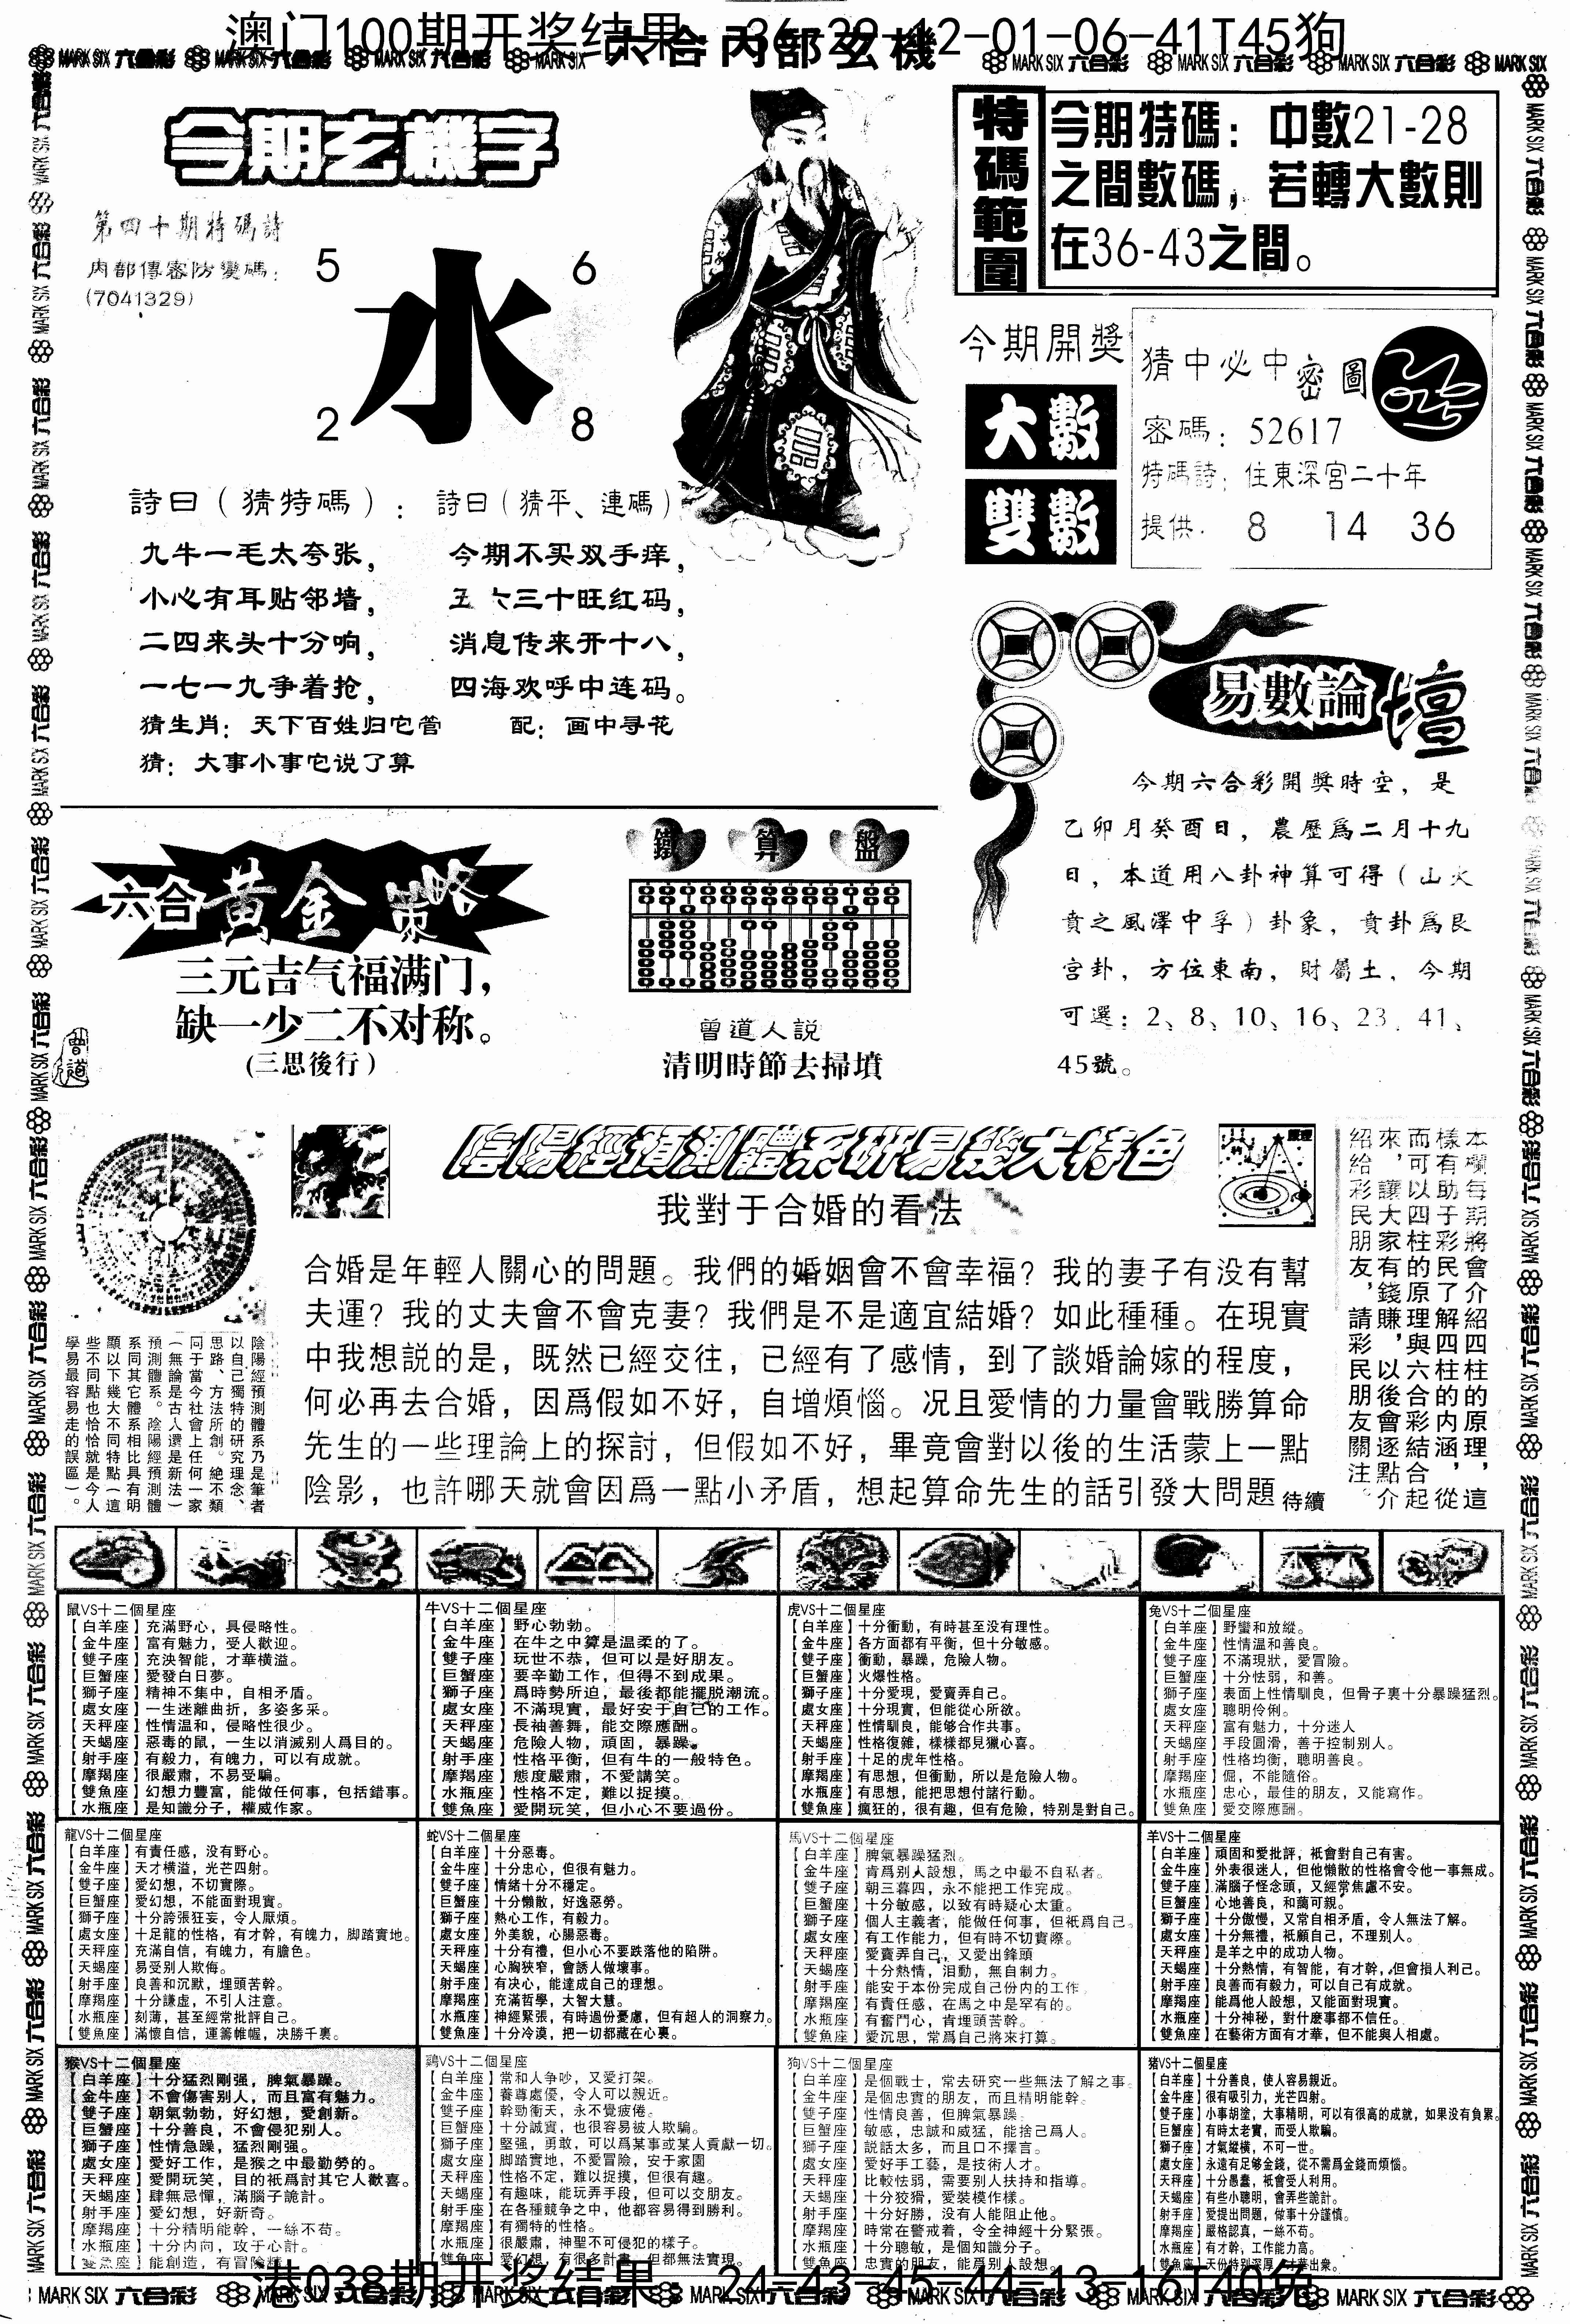 澳门100期开奖结果：36-29-12-01-06-41T45狗
六合內部玄機
今期玄機字
第四十期特碼詩
内部傳密防變碼：
(7041329)
5 6
水
2 8
特碼範圍
今期特碼：中數21-28
之間數碼，若轉大數則
在36-43之間。
今期開獎
大數
雙數
猜中必中密圖
密碼：52617
特碼詩：住東深宮二十年
提供. 8 14 36
詩曰（猜特碼）：
九牛一毛太夸张，
小心有耳贴邻墙，
二四来头十分响，
一七一九争着抢，
詩曰（猜平、連碼）
今期不买双手痒，
五六三十旺红码，
消息传来开十八，
四海欢呼中连码。
猜生肖：天下百姓归它菅 配：画中寻花
猜：大事小事它说了算
易數論壇
今期六合彩開獎時空，是
乙卯月癸酉日，農歷爲二月十九
日，本道用八卦神算可得（山火
賁之風澤中孚）卦象，賁卦爲艮
宮卦，方位東南，財屬土，今期
可選：2、8、10、16、23、41、
45號。
六合黃金策略
三元吉气福满门，
缺一少二不对称。
(三思後行)
曾道
鐵算盤
曾道人説
清明時節去掃墳
陰陽經預測體系研易幾大特色
我對于合婚的看法
合婚是年輕人關心的問題。我們的婚姻會不會幸福？我的妻子有没有幫
夫運？我的丈夫會不會克妻？我們是不是適宜結婚？如此種種。在現實
中我想説的是，既然已經交往，已經有了感情，到了談婚論嫁的程度，
何必再去合婚，因爲假如不好，自增煩惱。况且愛情的力量會戰勝算命
先生的一些理論上的探討，但假如不好，畢竟會對以後的生活蒙上一點
陰影，也許哪天就會因爲一點小矛盾，想起算命先生的話引發大問題 待續
本欄每期將會介紹四柱的原理，這
樣有助于彩民了解四柱的内涵，從
而可以四柱的原理與六合彩結合起
來，讓大家有錢賺，以後會逐點介
紹給彩民朋友，請彩民朋友關注。
陰陽經預測體系乃是筆者
以自己獨特的研究理念、
思路、方法所創。絶不類
同于當今社會上任何一家
（無論是古人還是新法）
預測體系。陰陽經預測體
系同其它體系相比具有明
顯以下幾大不同特點（這
些不同點也恰恰就是今人
學易最容易走的誤區）。
鼠VS十二個星座
【白羊座】充滿野心，具侵略性。
【金牛座】富有魅力，受人歡迎。
【雙子座】充泱智能，才華横溢。
【巨蟹座】愛發白日夢。
【獅子座】精神不集中，自相矛盾。
【處女座】一生迷離曲折，多姿多采。
【天秤座】性情温和，侵略性很少。
【天蝎座】惡毒的鼠，一生以消滅别人爲目的。
【射手座】有毅力，有魄力，可以有成就。
【摩羯座】很嚴肅，不易受騙。
【雙魚座】幻想力豐富，能做任何事，包括錯事。
【水瓶座】是知識分子，權威作家。
牛VS十二個星座
【白羊座】野心勃勃。
【金牛座】在牛之中算是温柔的了。
【雙子座】玩世不恭，但可以是好朋友。
【巨蟹座】要辛勤工作，但得不到成果。
【獅子座】爲時勢所迫，最後都能擺脱潮流。
【處女座】不滿現實，最好安于自己的工作。
【天秤座】長袖善舞，能交際應酬。
【天蝎座】危險人物，頑固，暴躁。
【射手座】性格平衡，但有牛的一般特色。
【摩羯座】態度嚴肅，不愛講笑。
【水瓶座】性格不定，難以捉摸。
【雙魚座】愛開玩笑，但小心不要過份。
虎VS十二個星座
【白羊座】十分衝動，有時甚至没有理性。
【金牛座】各方面都有平衡，但十分敏感。
【雙子座】衝動，暴躁，危險人物。
【巨蟹座】火爆性格。
【獅子座】十分愛現，愛賣弄自己。
【處女座】十分現實，但能從心所欲。
【天秤座】性情馴良，能够合作共事。
【天蝎座】性格復雜，樣樣都見獵心喜。
【射手座】十足的虎年性格。
【摩羯座】有思想，但衝動，所以是危險人物。
【水瓶座】有思想，能把思想付諸行動。
【雙魚座】瘋狂的，很有趣，但有危險，特别是對自己。
兔VS十二個星座
【白羊座】野蠻和放縱。
【金牛座】性情温和善良。
【雙子座】不滿現狀，愛冒險。
【巨蟹座】十分怯弱，和善。
【獅子座】表面上性情馴良，但骨子裏十分暴躁猛烈。
【處女座】聰明伶俐。
【天秤座】富有魅力，十分迷人
【天蝎座】手段圓滑，善于控制别人。
【射手座】性格均衡，聰明善良。
【摩羯座】倔，不能隨俗。
【水瓶座】忠心，最佳的朋友，又能寫作。
【雙魚座】愛交際應酬。
龍VS十二個星座
【白羊座】有責任感，没有野心。
【金牛座】天才横溢，光芒四射。
【雙子座】愛幻想，不切實際。
【巨蟹座】愛幻想，不能面對現實。
【獅子座】十分誇張狂妄，令人厭煩。
【處女座】十足龍的性格，有才幹，有魄力，脚踏實地。
【天秤座】充滿自信，有魄力，有膽色。
【天蝎座】易受别人欺侮。
【射手座】良善和沉默，埋頭苦幹。
【摩羯座】十分謙虚，不引人注意。
【水瓶座】刻薄，甚至經常批評自己。
【雙魚座】滿懷自信，運籌帷幄，决勝千裏。
蛇VS十二個星座
【白羊座】十分惡毒。
【金牛座】十分忠心，但很有魅力。
【雙子座】情緒十分不穩定。
【巨蟹座】十分懶散，好逸惡勞。
【獅子座】熱心工作，有毅力。
【處女座】外美貌，心腸惡毒。
【天秤座】十分有禮，但小心不要跌落他的陷阱。
【天蝎座】心胸狹窄，會誘人做壞事。
【射手座】有决心，能達成自己的理想。
【摩羯座】充滿哲學，大智大慧。
【水瓶座】神經緊張，有時過份憂慮，但有超人的洞察力。
【雙魚座】十分冷漠，把一切都藏在心裏。
馬VS十二個星座
【白羊座】脾氣暴躁猛烈。
【金牛座】肯爲别人設想，馬之中最不自私者。
【雙子座】朝三暮四，永不能把工作完成。
【巨蟹座】十分敏感，以致有時疑心太重。
【獅子座】個人主義者，能做任何事，但祇爲自己。
【處女座】有工作能力，但有時不切實際。
【天秤座】愛賣弄自己，又愛出鋒頭
【天蝎座】十分熱情，泪動，無自制力。
【射手座】能安于本份完成自己份内的工作
【摩羯座】有責任感，在馬之中是罕有的。
【水瓶座】有奮鬥心，肯埋頭苦幹。
【雙魚座】愛沉思，常爲自己將來打算。
羊VS十二個星座
【白羊座】頑固和愛批評，祇會對自己有害。
【金牛座】外表很迷人，但他懶散的性格會令他一事無成。
【雙子座】滿腦子怪念頭，又經常焦慮不安。
【巨蟹座】心地善良，和藹可親。
【獅子座】十分傲慢，又常自相矛盾，令人無法了解。
【處女座】十分無禮，祇顧自己，不理别人。
【天秤座】是羊之中的成功人物。
【天蝎座】十分熱情，有智能，有才幹，但會損人利己。
【射手座】良善而有毅力，可以自己有成就。
【摩羯座】能爲他人設想，又能面對現實。
【水瓶座】十分神秘，對什麽事都不信任。
【雙魚座】在藝術方面有才華，但不能與人相處。
猴VS十二個星座
【白羊座】十分猛烈剛强，脾氣暴躁。
【金牛座】不會傷害别人，而且富有魅力。
【雙子座】朝氣勃勃，好幻想，愛創新。
【巨蟹座】十分善良，不會侵犯别人。
【獅子座】性情急躁，猛烈剛强。
【處女座】愛好工作，是猴之中最勤勞的。
【天秤座】愛開玩笑，目的祇爲討其它人歡喜。
【天蝎座】肆無忌憚，滿腦子詭計。
【射手座】愛幻想，好新奇。
【摩羯座】十分精明能幹，一絲不苟。
【水瓶座】十分内向，攻于心計。
【雙魚座】能創造，有冒險精
鷄VS十二個星座
【白羊座】常和人争吵，又愛打架。
【金牛座】養尊處優，令人可以親近。
【雙子座】幹勁衝天，永不覺疲倦。
【巨蟹座】十分誠實，也很容易被人欺騙。
【獅子座】堅强，勇敢，可以爲某事或某人貢獻一切。
【處女座】脚踏實地，不愛冒險，安于家園
【天秤座】性格不定，難以捉摸，但很有趣。
【天蝎座】有趣味，能玩弄手段，但可以交朋友。
【射手座】在各種競争之中，他都容易得到勝利。
【摩羯座】有獨特的性格。
【水瓶座】很嚴肅，神聖不可侵犯的樣子。
【雙魚座】愛幻想，有很多計畫，但都無法實現。
狗VS十二個星座
【白羊座】是個戰士，常去研究一些無法了解之事。
【金牛座】是個忠實的朋友，而且精明能幹。
【雙子座】性情良善，但脾氣暴躁。
【巨蟹座】敏感，忠誠和威猛，能捨己爲人。
【獅子座】説話太多，而且口不擇言。
【處女座】愛好手工藝，是技術人才。
【天秤座】比較怯弱，需要别人扶持和指導。
【天蝎座】十分狡猾，愛裝模作樣。
【射手座】十分好勝，没有人能阻止他。
【摩羯座】時常在警戒着，令全神經十分緊張。
【水瓶座】十分聰敏，是個知識分子。
【雙魚座】忠實的朋友，能爲别人設想。
猪VS十二個星座
【白羊座】十分善良，使人容易親近。
【金牛座】很有吸引力，光芒四射。
【雙子座】小事胡塗，大事精明，可以有很高的成就，如果没有負累。
【巨蟹座】有時太老實，而受人欺騙。
【獅子座】才氣縱横，不可一世。
【處女座】永遠有足够金錢，從不需爲金錢而煩惱。
【天秤座】十分愚蠢，祇會受人利用。
【天蝎座】有些小聰明，會弄些詭計。
【射手座】愛提出問題，做事十分謹慎。
【摩羯座】嚴格認真，一絲不苟。
【水瓶座】有才幹，工作能力高。
【雙魚座】天份特别深厚，才華出衆。
港038期开奖结果：24-43-45-44-13-16T40兔
MARK SIX 六合彩